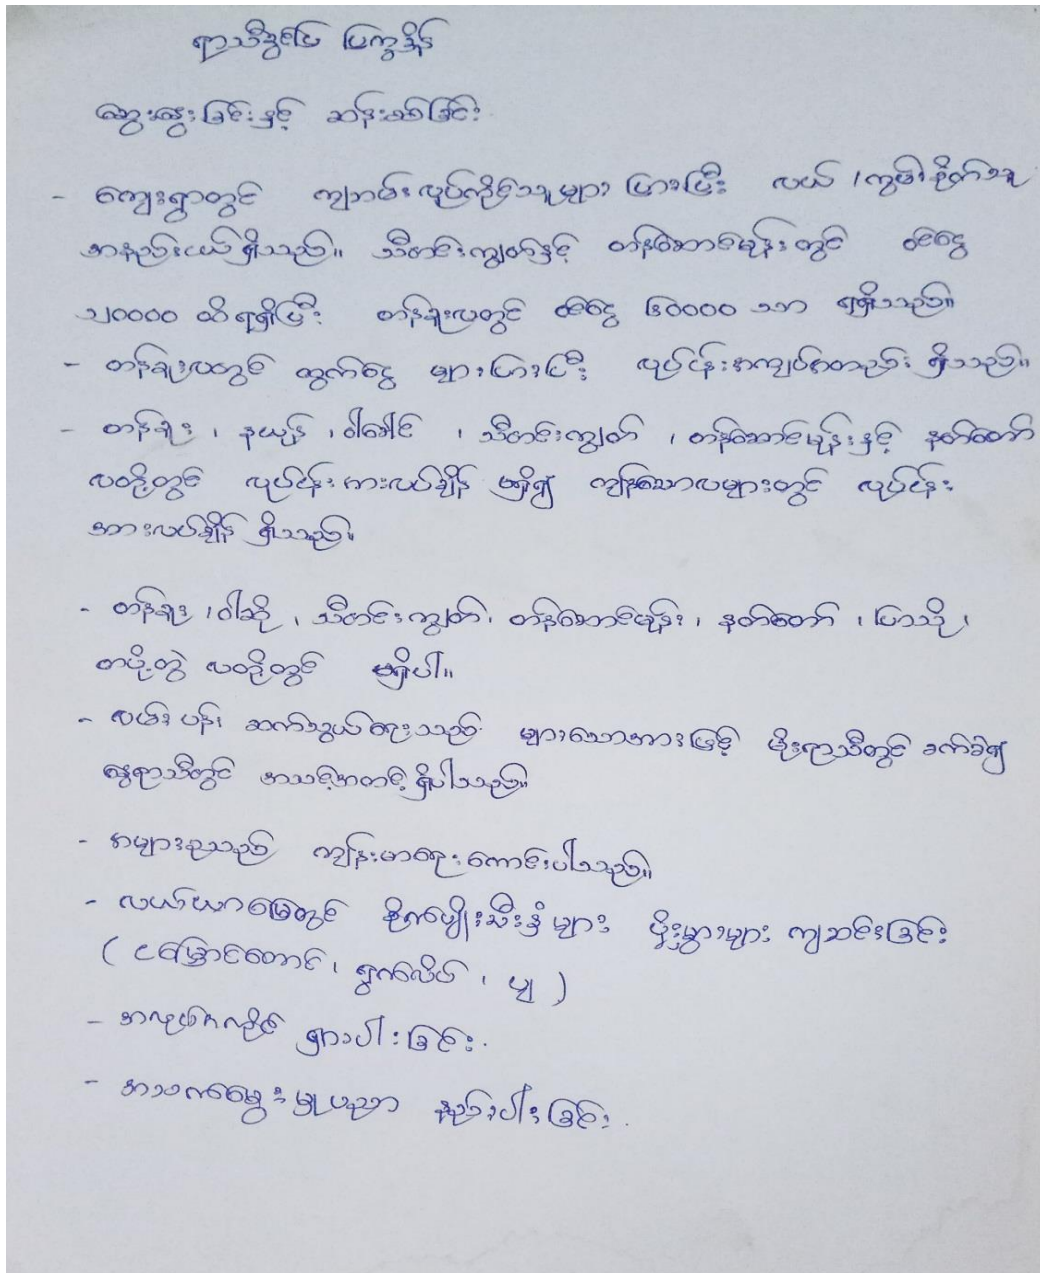 ရာသီခွင်ပြ ပြက္ခဒိန်
ဆွေးနွေးခြင်းနှင့် ဆန်းစစ်ခြင်း
- ကျေးရွာတွင် ကျဘမ်းလုပ်ကိုင်သူများ များပြီး လယ်၊ကွမ်းစိုက်သူ
အနည်းငယ်ရှိသည်။ သီတင်းကျွတ်နှင့် တန်ဆောင်မုန်းတွင် ဝင်ငွေ
၁၂၀၀၀၀ ထိရရှိပြီး တန်ခူးလတွင် ဝင်ငွေ ၆၀၀၀၀ သာ ရရှိသည်။
- တန်ခူးလတွင် ထွက်ငွေ များပြားပြီး လုပ်ငန်းအကျပ်အတည်း ရှိသည်။
- တန်ခူး ၊ နယုန် ၊ ဝါခေါင် ၊ သီတင်းကျွတ် ၊ တန်ဆောင်မုန်းနှင့် နတ်တော်
လတို့တွင် လုပ်ငန်းအားလပ်ချိန် မရှိ၍ ကျန်သောလများတွင် လုပ်ငန်း
အားလပ်ချိန် ရှိသည်။
- တန်ခူး ၊ဝါဆို ၊ သီတင်းကျွတ်၊ တန်ဆောင်မုန်း ၊ နတ်တော် ၊ ပြာသို ၊
တပို့တွဲ လတို့တွင် မရှိပါ။
- လမ်းပန်း ဆက်သွယ်ရေးသည် များသောအားဖြင့် မိုးရာသီတွင် ခက်ခဲ၍
နွေရာသီတွင် အသင့်အတင့် ရှိပါသည်။
- အများစုသည် ကျန်းမာရေးကောင်းပါသည်။
- လယ်ယာမြေတွင် စိုက်ပျိုးသီးနှံများ ပိုးမွှားများ ကျဆင်းခြင်း
( ငမြှောင်တောင် ၊ ရွက်လိပ် ၊ ပျ )
- အလုပ်အကိုင် ရှားပါးခြင်း.
- အသက်မွေးမှုပညာ နည်းပါးခြင်း .